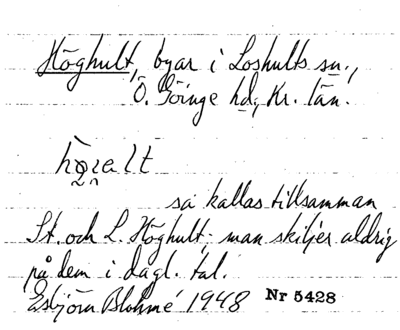 Höghult, byar i Loshults sn.,
Ö. Göinge hd., Kr. län.
så kallas tillsamman
St. och L. Höghult; man skiljer aldrig
på dem i dagl. tal.
Esbjörn Blohmé 1948 Nr 5428